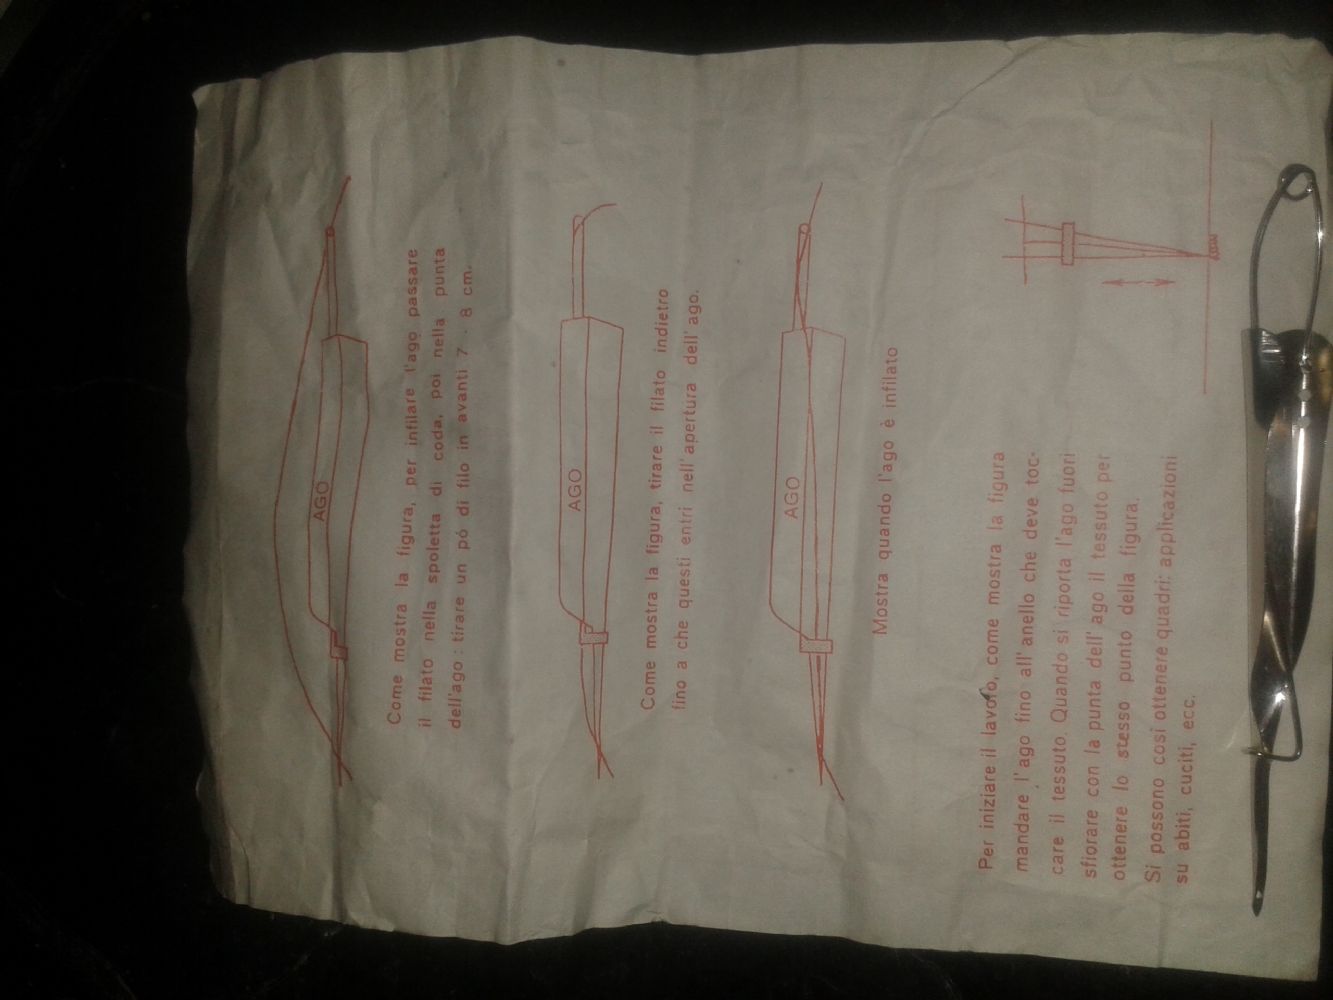 AGO
Come mostra la figura, per infilare l'ago passare
il filato nella spoletta di coda, poi nella punta
dell'ago : tirare un pó di filo in avanti 7 - 8 cm.
AGO
Come mostra la figura, tirare il filato indietro
fino a che questi entri nell'apertura dell'ago.
AGO
Mostra quando l'ago è infilato
Per iniziare il lavoro, come mostra la figura
mandare l'ago fino all'anello che deve toc-
care il tessuto. Quando si riporta l'ago fuori
sfiorare con la punta dell'ago il tessuto per
ottenere lo stesso punto della figura.
Si possono cosi ottenere quadri: applicazioni
su abiti, cuciti, ecc.